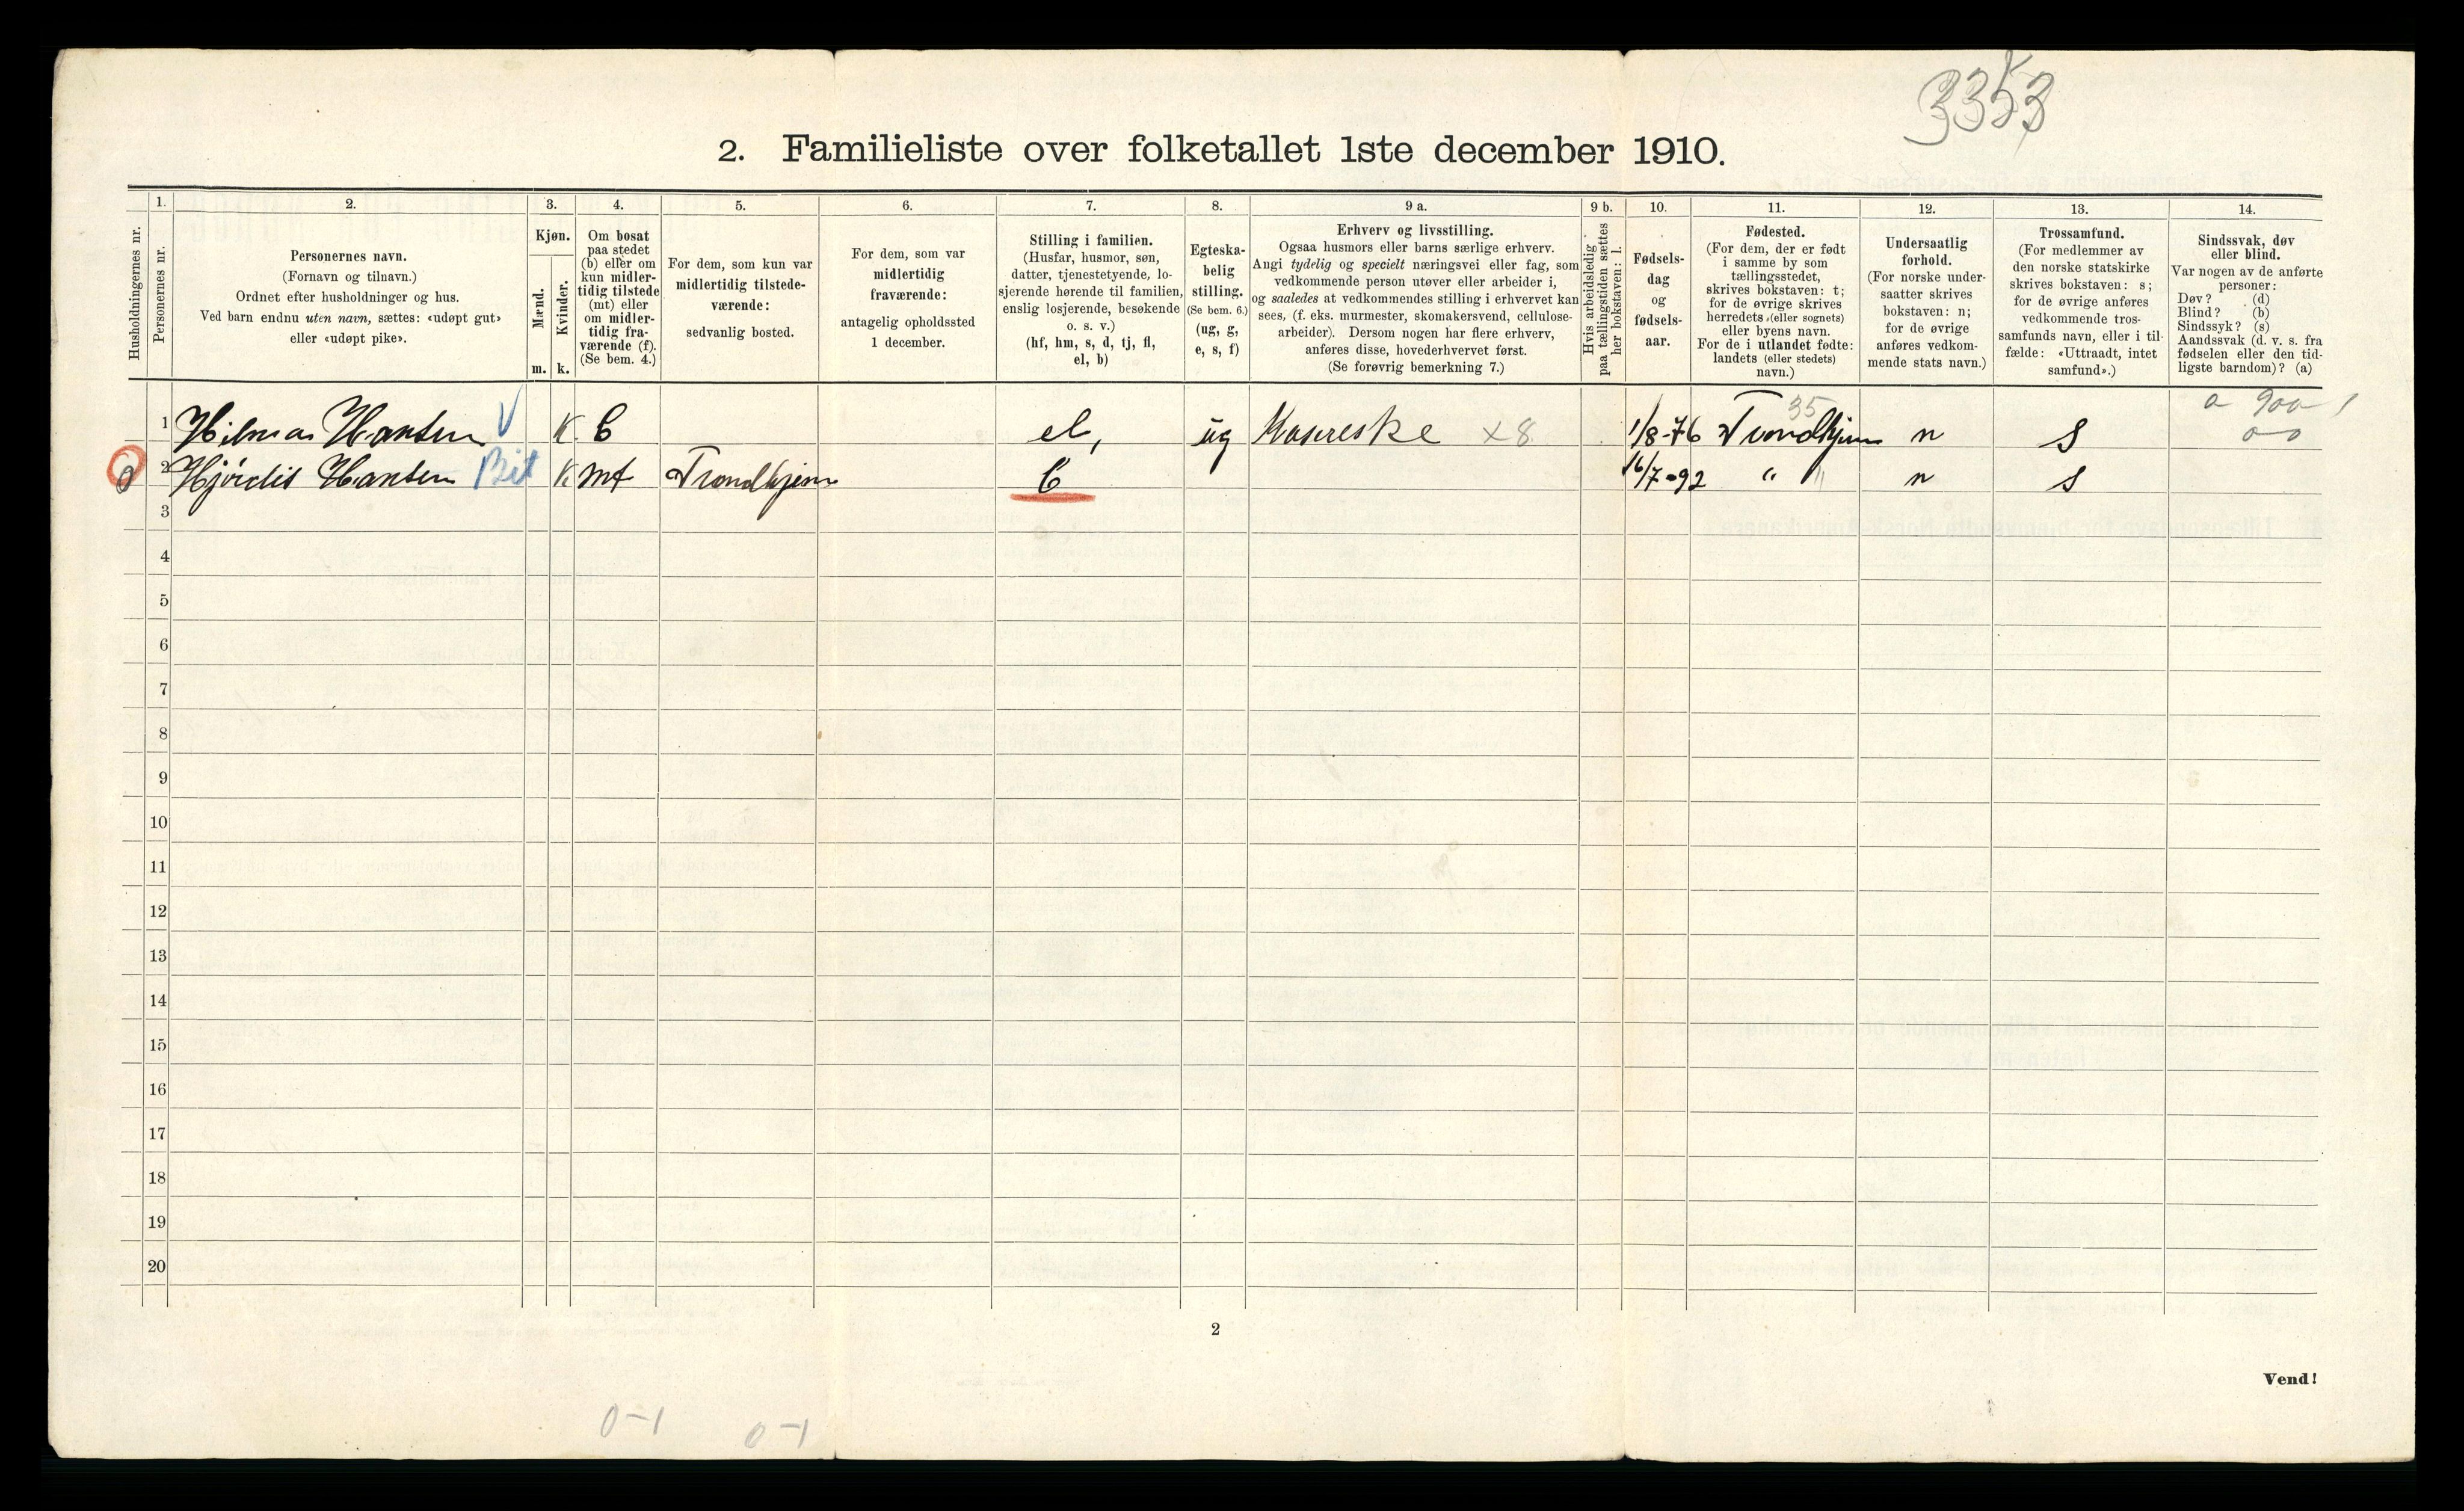 3353
2. Familieliste over folketallet 1ste december 1910.
Husholdningernes nr.
1.
Personernes nr.
2.
Personernes navn.
(Fornavn og tilnavn.)
Ordnet efter husholdninger og hus.
Ved barn endnu uten navn, sættes: «udøpt gut»
eller «udøpt pike».
3.
Kjøn.
Mænd.
Kvinder.
m. k.
4.
Om bosat
paa stedet
(b) eller om
kun midler-
tidig tilstede
(mt) eller
om midler-
tidig fra-
værende (f).
(Se bem. 4.)
5.
For dem, som kun var
midlertidig tilstede-
værende:
sedvanlig bosted.
6.
For dem, som var
midlertidig
fraværende:
antagelig opholdssted
1 december.
7.
Stilling i familien.
(Husfar, husmor, søn,
datter, tjenestetyende, lo-
sjerende hørende til familien,
enslig losjerende, besøkende
o. s. v.)
(hf, hm, s, d, tj, fl,
el, b)
8.
Egteska-
belig
stilling.
(Se bem. 6.)
(ug, g,
e, s, f)
9 a.
Erhverv og livsstilling.
Ogsaa husmors eller barns særlige erhverv.
Angi tydelig og specielt næringsvei eller fag, som
vedkommende person utøver eller arbeider i,
og saaledes at vedkommendes stilling i erhvervet kan
sees, (f. eks. murmester, skomakersvend, cellulose-
arbeider). Dersom nogen har flere erhverv,
anføres disse, hovederhvervet først.
(Se forøvrig bemerkning 7.)
9 b.
Hvis arbeidsledig
paa tællingstiden sættes
her bokstaven: l.
10.
Fødsels-
dag
og
fødsels-
aar.
11.
Fødested.
(For dem, der er født
i samme by som
tællingsstedet,
skrives bokstaven: t;
for de øvrige skrives
herredets (eller sognets)
eller byens navn.
For de i utlandet fødte:
landets (eller stedets)
navn.)
12.
Undersaatlig
forhold.
(For norske under-
saatter skrives
bokstaven: n;
for de øvrige
anføres vedkom-
mende stats navn.)
13.
Trossamfund.
(For medlemmer av
den norske statskirke
skrives bokstaven: s;
for de øvrige anføres
vedkommende tros-
samfunds navn, eller i til-
fælde: «Uttraadt, intet
samfund».)
14.
Sindssvak, døv
eller blind.
Var nogen av de anførte
personer:
Døv? (d)
Blind? (b)
Sindssyk? (s)
Aandssvak (d. v. s. fra
fødselen eller den tid-
ligste barndom)? (a)
1 Hilma Hansen V K b el, ug ×8 1/8-76 35 Trondhjem n s
2 Hjørdis Hansen K mt Trondhjem b 16/7-92 " " n s
3
4
5
6
7
8
9
10
11
12
13
14
15
16
17
18
19
20
2
Vend!
0-1 0-1